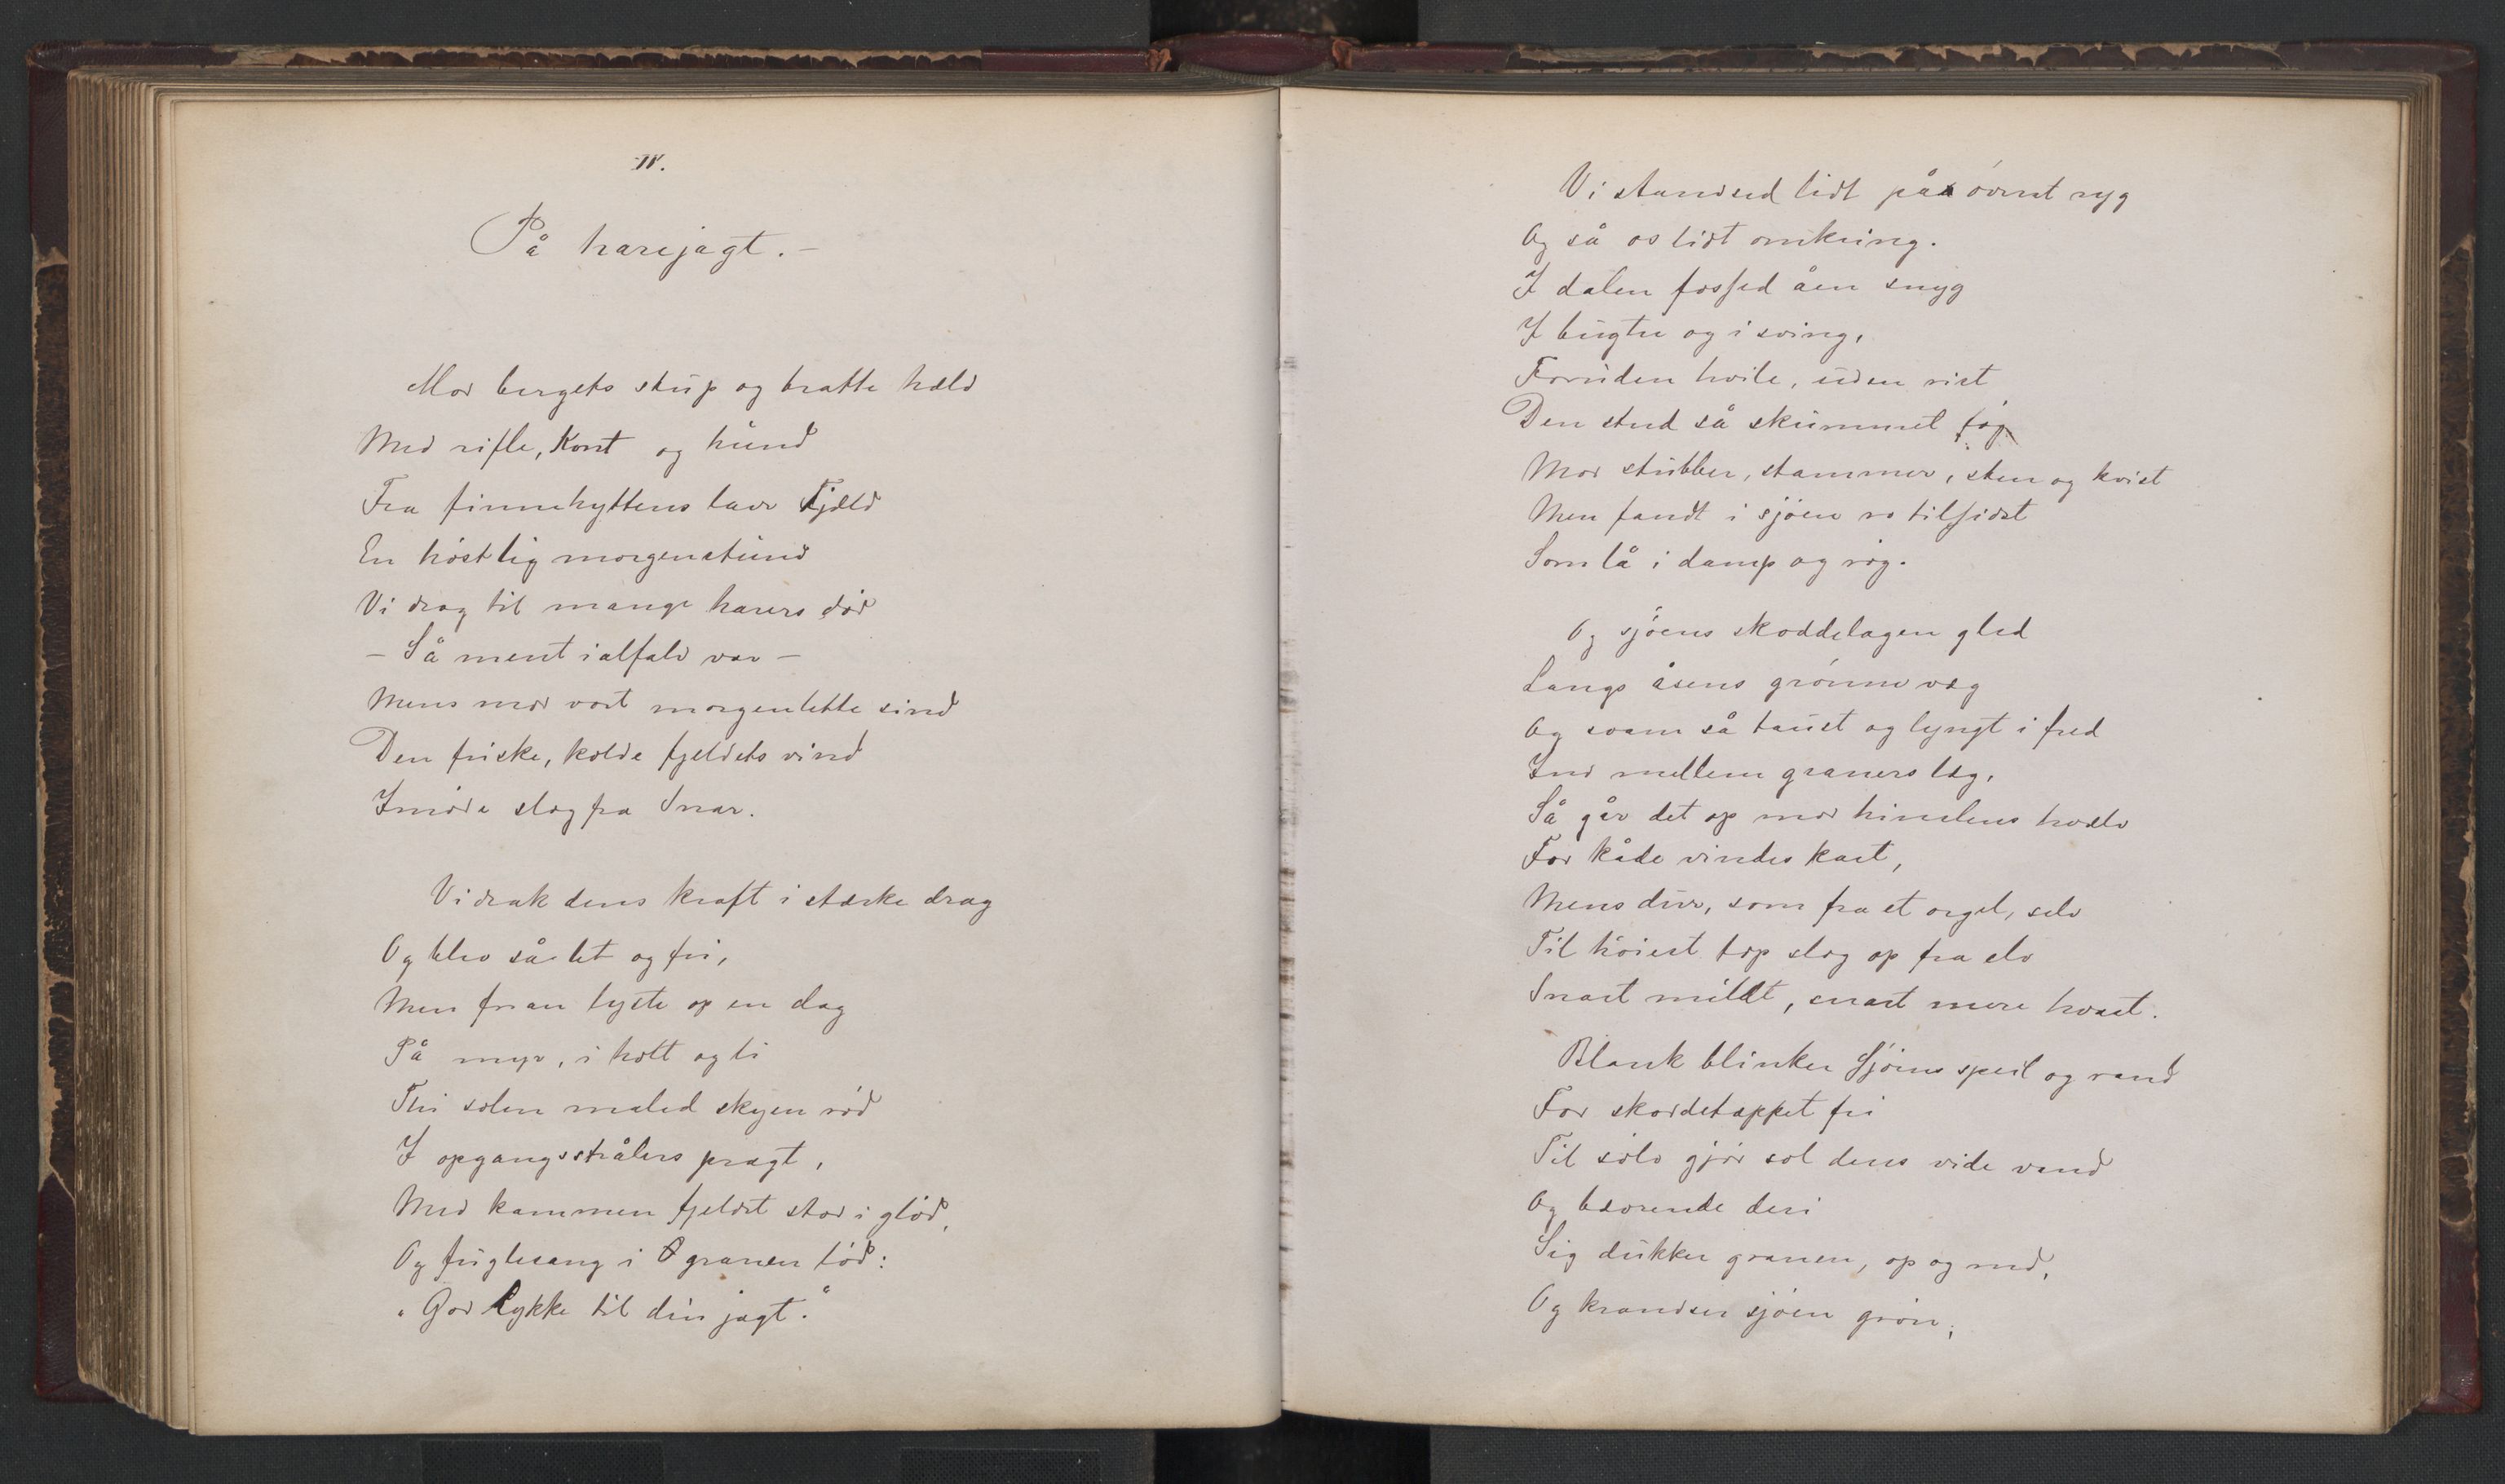 IV.
På harejagt. –
Mod bergets stup og bratte hæld
Med rifle, Kont og hund
Fra finnehyttens lave Tjæld
En høstlig morgenstund
Vi drog til mange harers død
– Så ment ialfald var –
Mens mod vort morgenlette sind
Den friske, kolde fjeldets vind
Imøde slog fra Snar.
Vi drak dens kraft i stærke drag
Og blev så let og fri,
Men foran lyste op en dag
På myr, i holt og li
Thi solen maled skyen rød
I opgangsstrålers pragt,
Med kammen fjeldet stod i glød,
Og fuglesang i granen lød:
"God lykke til din jagt."
Vi standsed lidt på øverst ryg
Og så os lidt omkring.
I dalen fossed åen snyg
I bugter og i sving,
Foruden hvile, uden rist
Den stred så skummet føg
Mod stubber, stammer, sten og kvist
Men fandt i sjøen ro tilsidst
Som lå i damp og røg.
Og sjøens skoddelagen gled
Langs åsens grønne væg
Og svam så taust og lyngt i fred
Ind mellem graners læg,
Så går det op mod himlens hvælv
For kåde vindes kast,
Mens dur, som fra et orgel, selv
Til høiest top slog op fra elv
Snart mildt, snart mere hvast.
Blank blinker Sjøens speil og rand
For skoddetæppet fri
Til sølv gjør sol dens vide vand
Og bævrende deri
Sig dukker granen, op og ned,
Og krandser sjøen grøn,